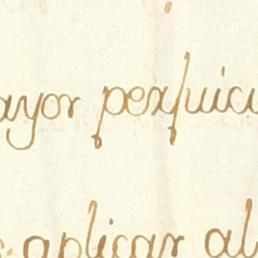 ayor perjuici
aplicar al